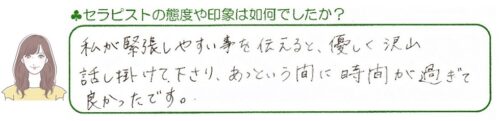 ♣セラピストの態度や印象は如何でしたか？
私が緊張しやすい事を伝えると、優しく沢山
話し掛けて下さり、あっという間に時間が過ぎて
良かったです。